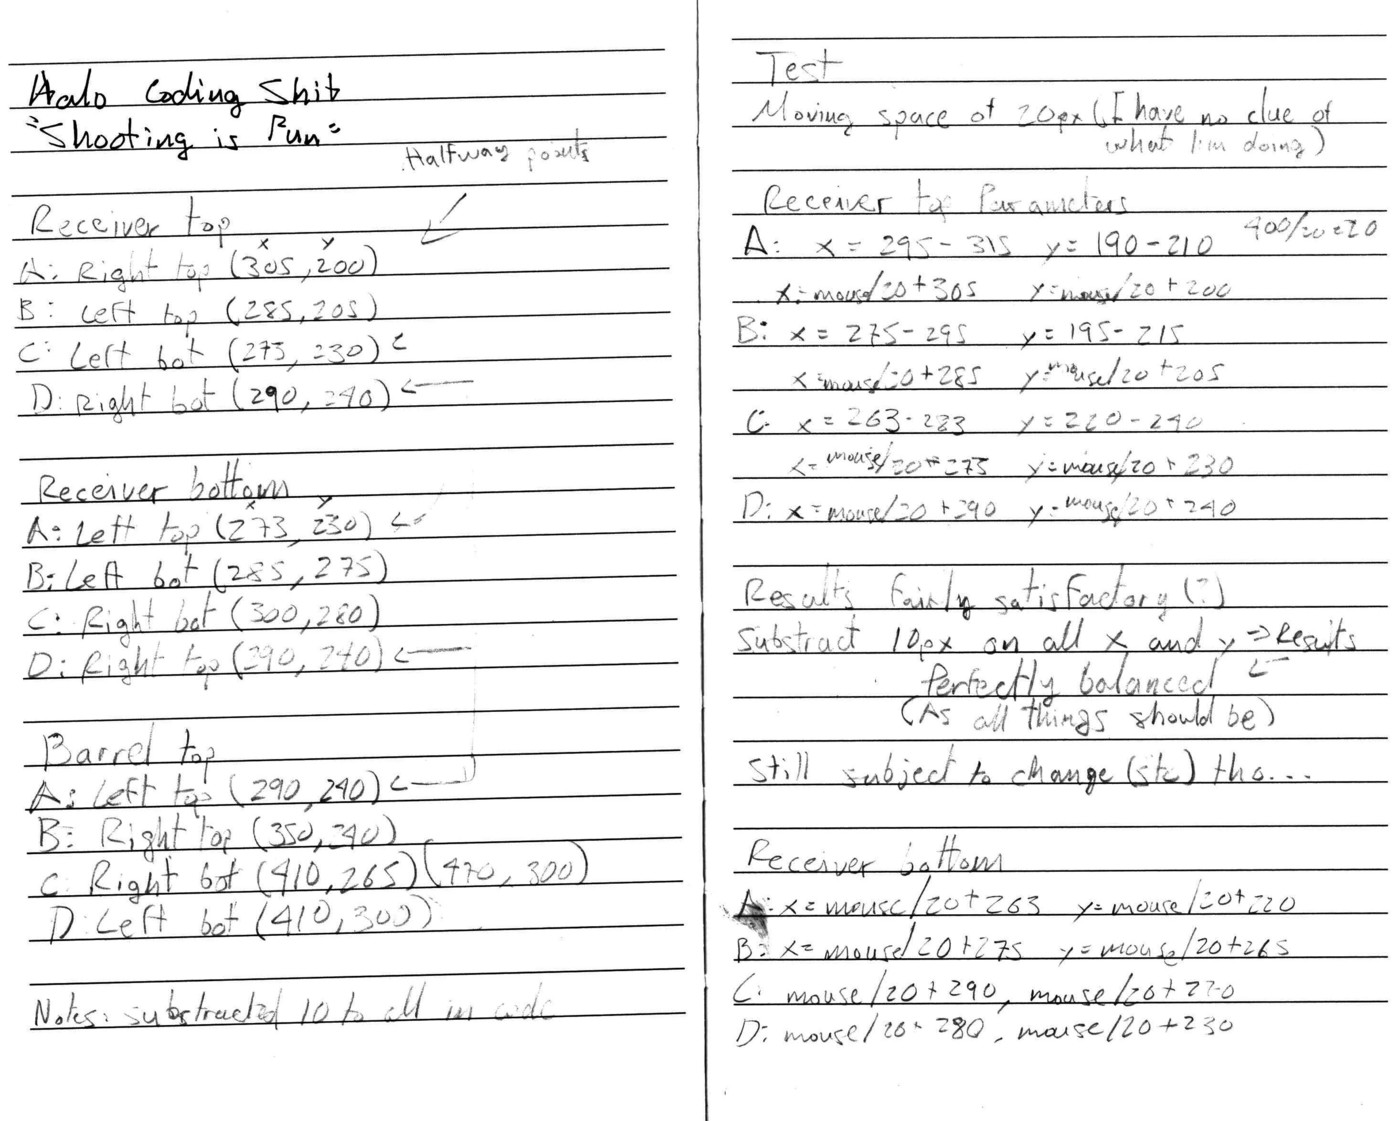 Halo Coding Shit
"Shooting is Fun"
Halfway points
Receiver top
x y
A: Right top (305, 200)
B: Left top (285, 205)
C: Left bot (273, 230) <
D: Right bot (290, 240) <-
Receiver bottom
x y
A: Left top (273, 230) <-
B: Left bot (285, 275)
C: Right bot (300, 280)
D: Right top (290, 240) <-
Barrel top
A: Left top (290, 240) <-
B: Right top (350, 240)
C: Right bot (410, 265) (470, 300)
D: Left bot (410, 300)
Notes: substracted 10 to all in code
Test
Moving space of 20px (I have no clue of
what I'm doing)
Receiver top Parameters
A: x = 295 - 315 y = 190 - 210 400/20=20
x=mouse/20+305 y=mouse/20+200
B: x = 275 - 295 y = 195 - 215
x=mouse/20+285 y=mouse/20+205
C: x = 263 - 283 y = 220 - 240
x=mouse/20+273 y=mouse/20+230
D: x=mouse/20+290 y=mouse/20+240
Results fairly satisfactory (?)
Substract 10px on all x and y => Results
Perfectly balanced <-
(As all things should be)
Still subject to change (stc) tho...
Receiver bottom
A: x=mouse/20+263 y=mouse/20+220
B: x=mouse/20+275 y=mouse/20+265
C: mouse/20+290, mouse/20+270
D: mouse/20+280, mouse/20+230